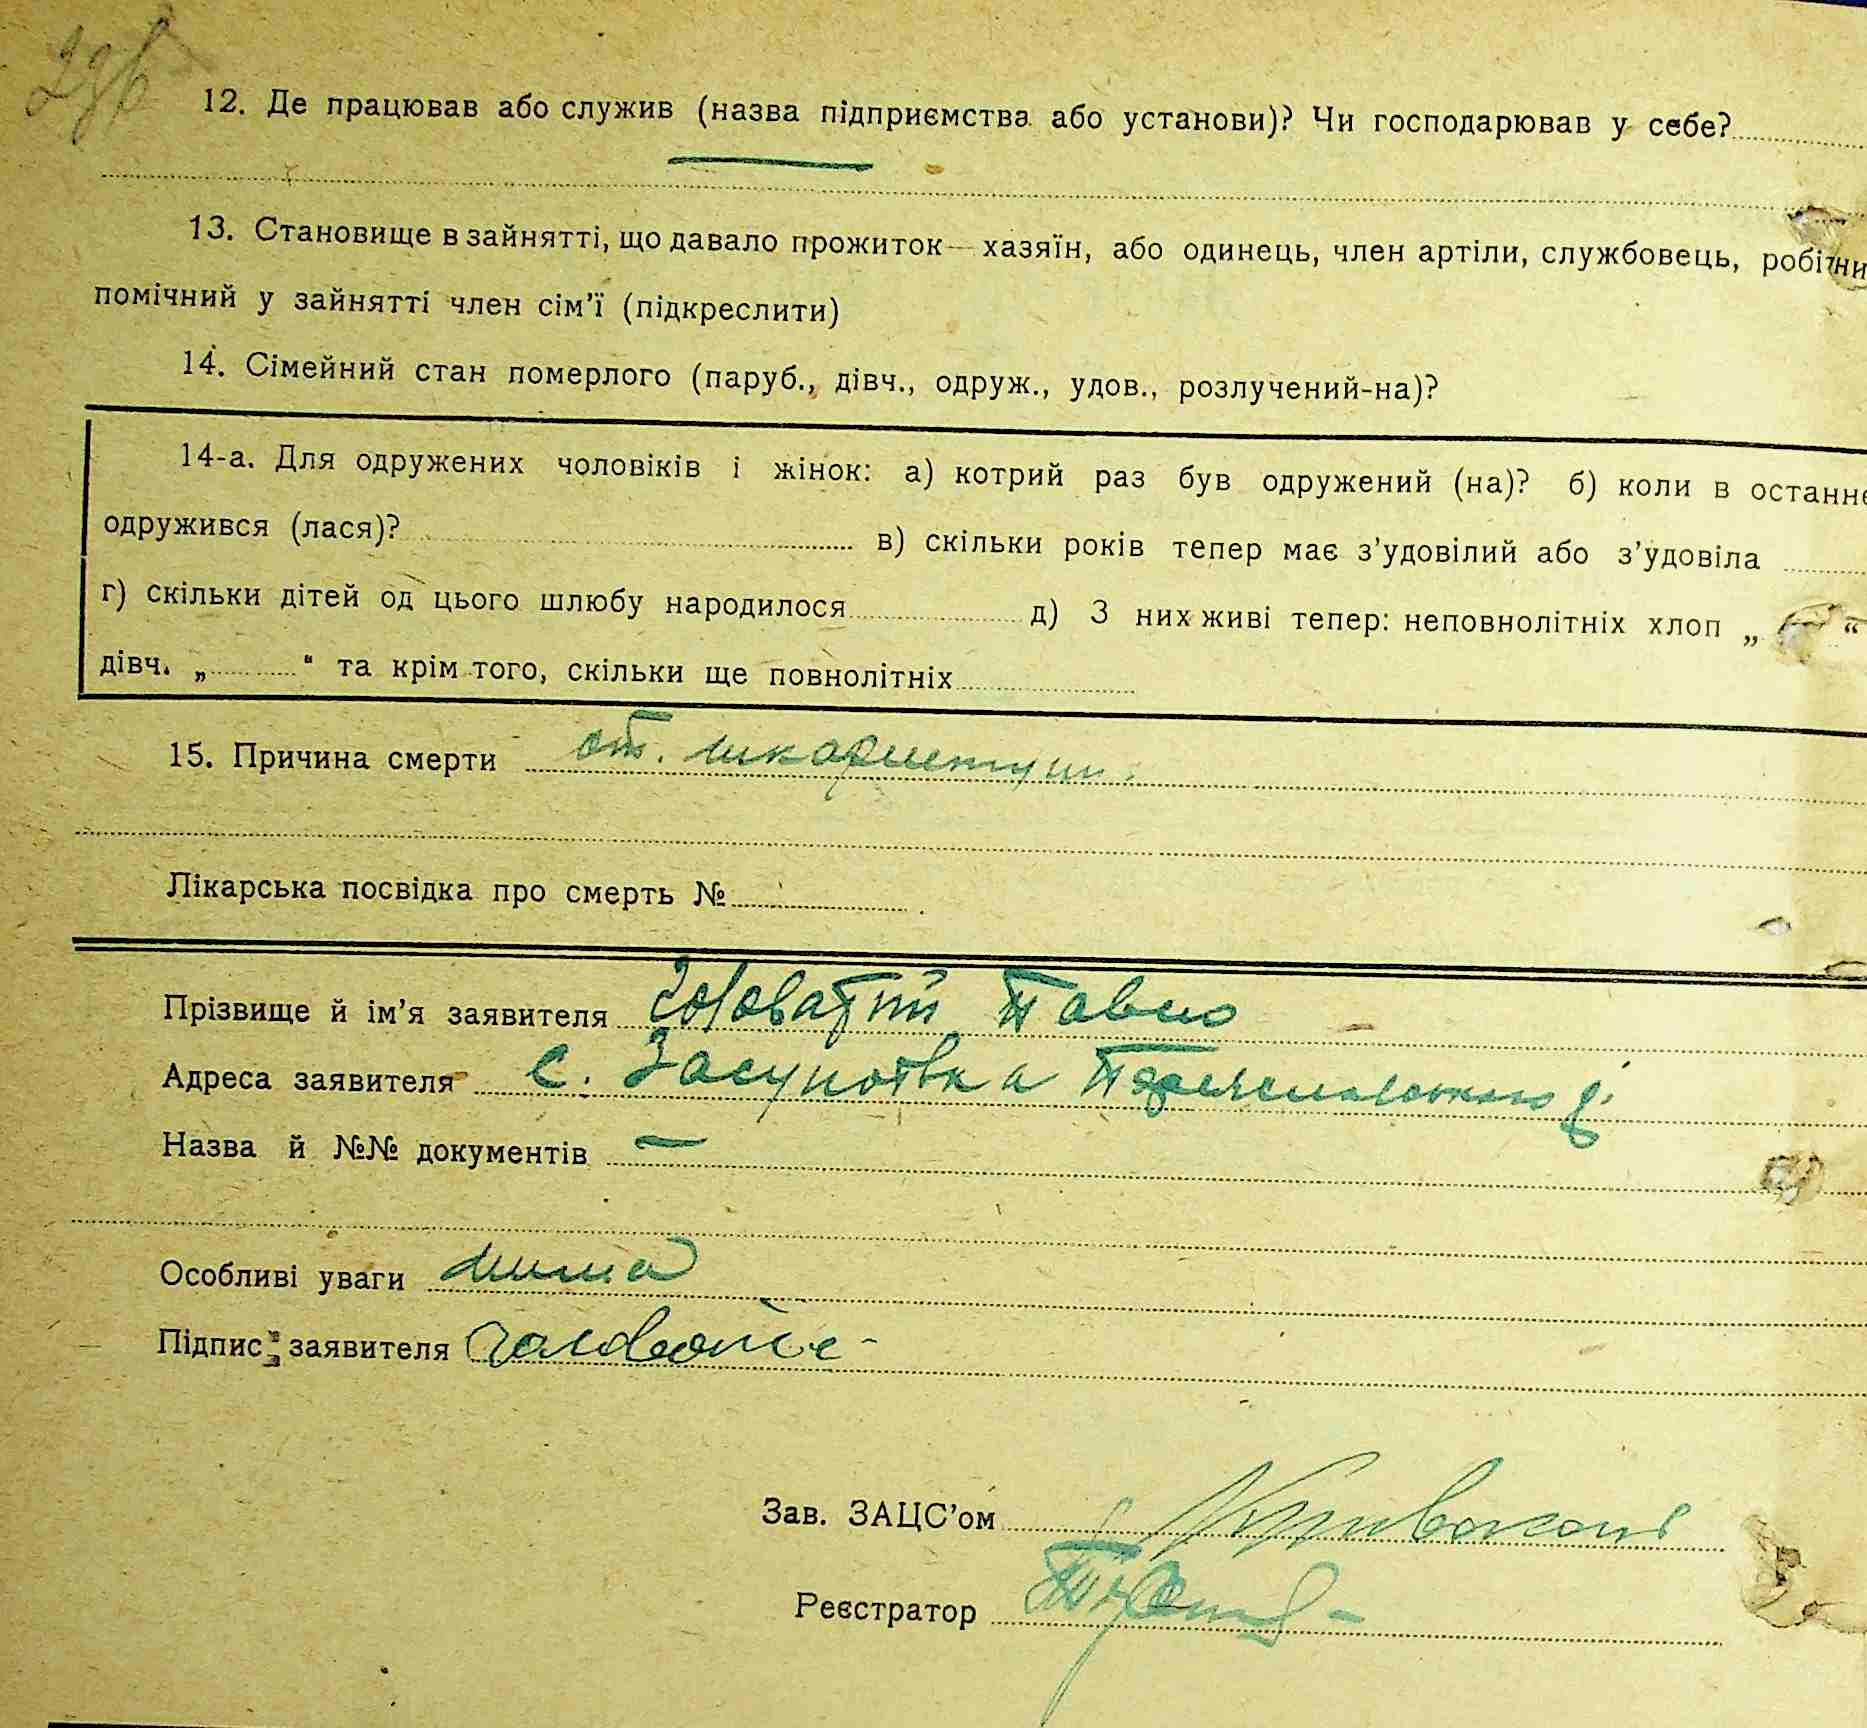 12. Де працював або служив (назва підприємства або установи)? Чи господарював у себе?
13. Становище в зайнятті, що давало прожиток — хазяїн, або одинець, член артіли, службовець, робітни
помічний у зайнятті член сім’ї (підкреслити)
14. Сімейний стан померлого (паруб., дівч., одруж., удов., розлучений-на)?
14-а. Для одружених чоловіків і жінок: а) котрий раз був одружений (на)? б) коли в останнє
одружився (лася)? в) скільки років тепер має з’удовілий або з’удовіла
г) скільки дітей од цього шлюбу народилося д) З них живі тепер: неповнолітніх хлоп „ “
дівч. „ “ та крім того, скільки ще повнолітніх
15. Причина смерти от. шкарлетуни.
Лікарська посвідка про смерть №
Прізвище й ім’я заявителя Головатий Павло
Адреса заявителя с. Засупоївка
Назва й №№ документів —
Особливі уваги нима
Підпис заявителя
Зав. ЗАЦС’ом
Реєстратор